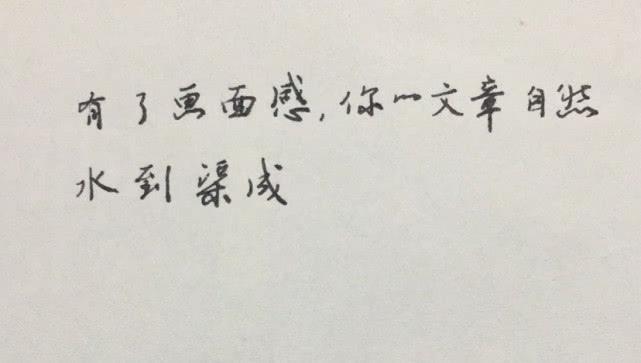 有了画面感,你的文章自然
水到渠成